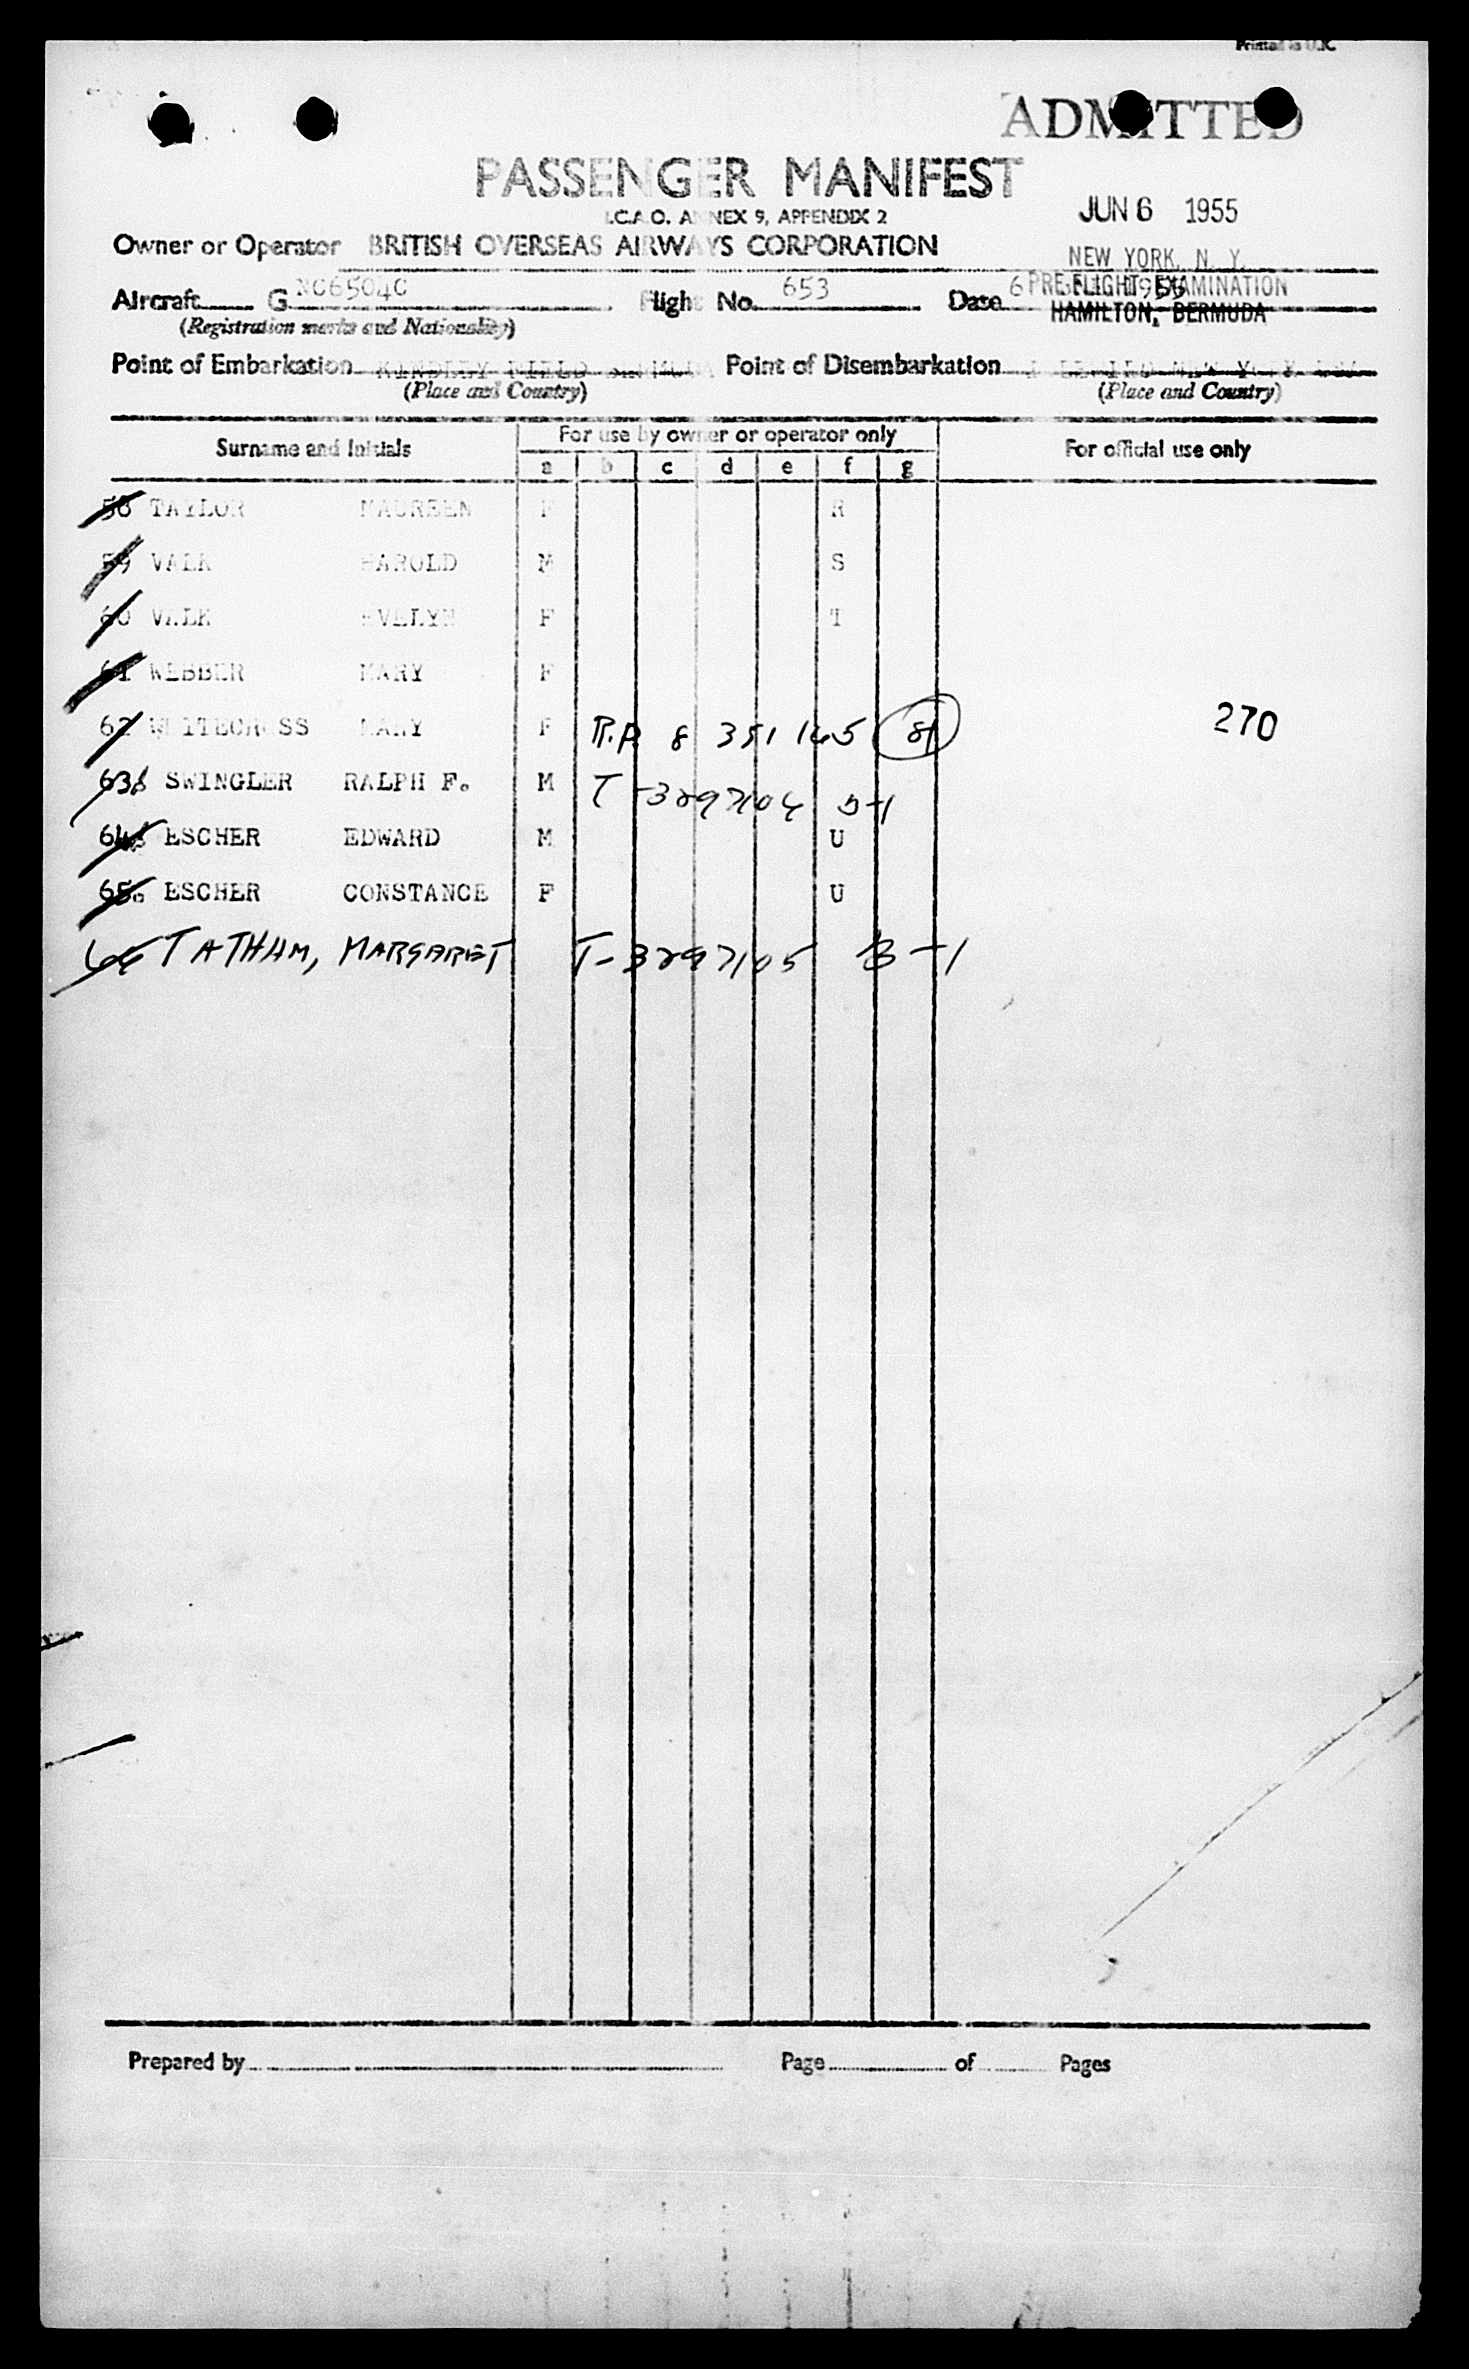 Printed in U.K.
ADMITTED
PASSENGER MANIFEST
I.C.A.O. ANNEX 9, APPENDIX 2
JUN 6 1955
Owner or Operator BRITISH OVERSEAS AIRWAYS CORPORATION
NEW YORK, N. Y.
Aircraft G NC65040 Flight No. 653 Date 6
PRE-FLIGHT EXAMINATION
HAMILTON, BERMUDA
(Registration marks and Nationality)
Point of Embarkation KINDLEY FIELD BERMUDA Point of Disembarkation
(Place and Country) (Place and Country)
Surname and Initials For use by owner or operator only For official use only
a b c d e f g
58 TAYLOR MAUREEN F R
59 VALK HAROLD M S
60 VALK EVELYN F T
61 WEBBER MARY F
62 WHITECROSS MARY F R.P. 8 351 145 81 270
63 SWINGLER RALPH F. M T-3297104 B-1
64 ESCHER EDWARD M U
65 ESCHER CONSTANCE F U
66 TATHAM, MARGARET T-3297105 B-1
Prepared by Page of Pages